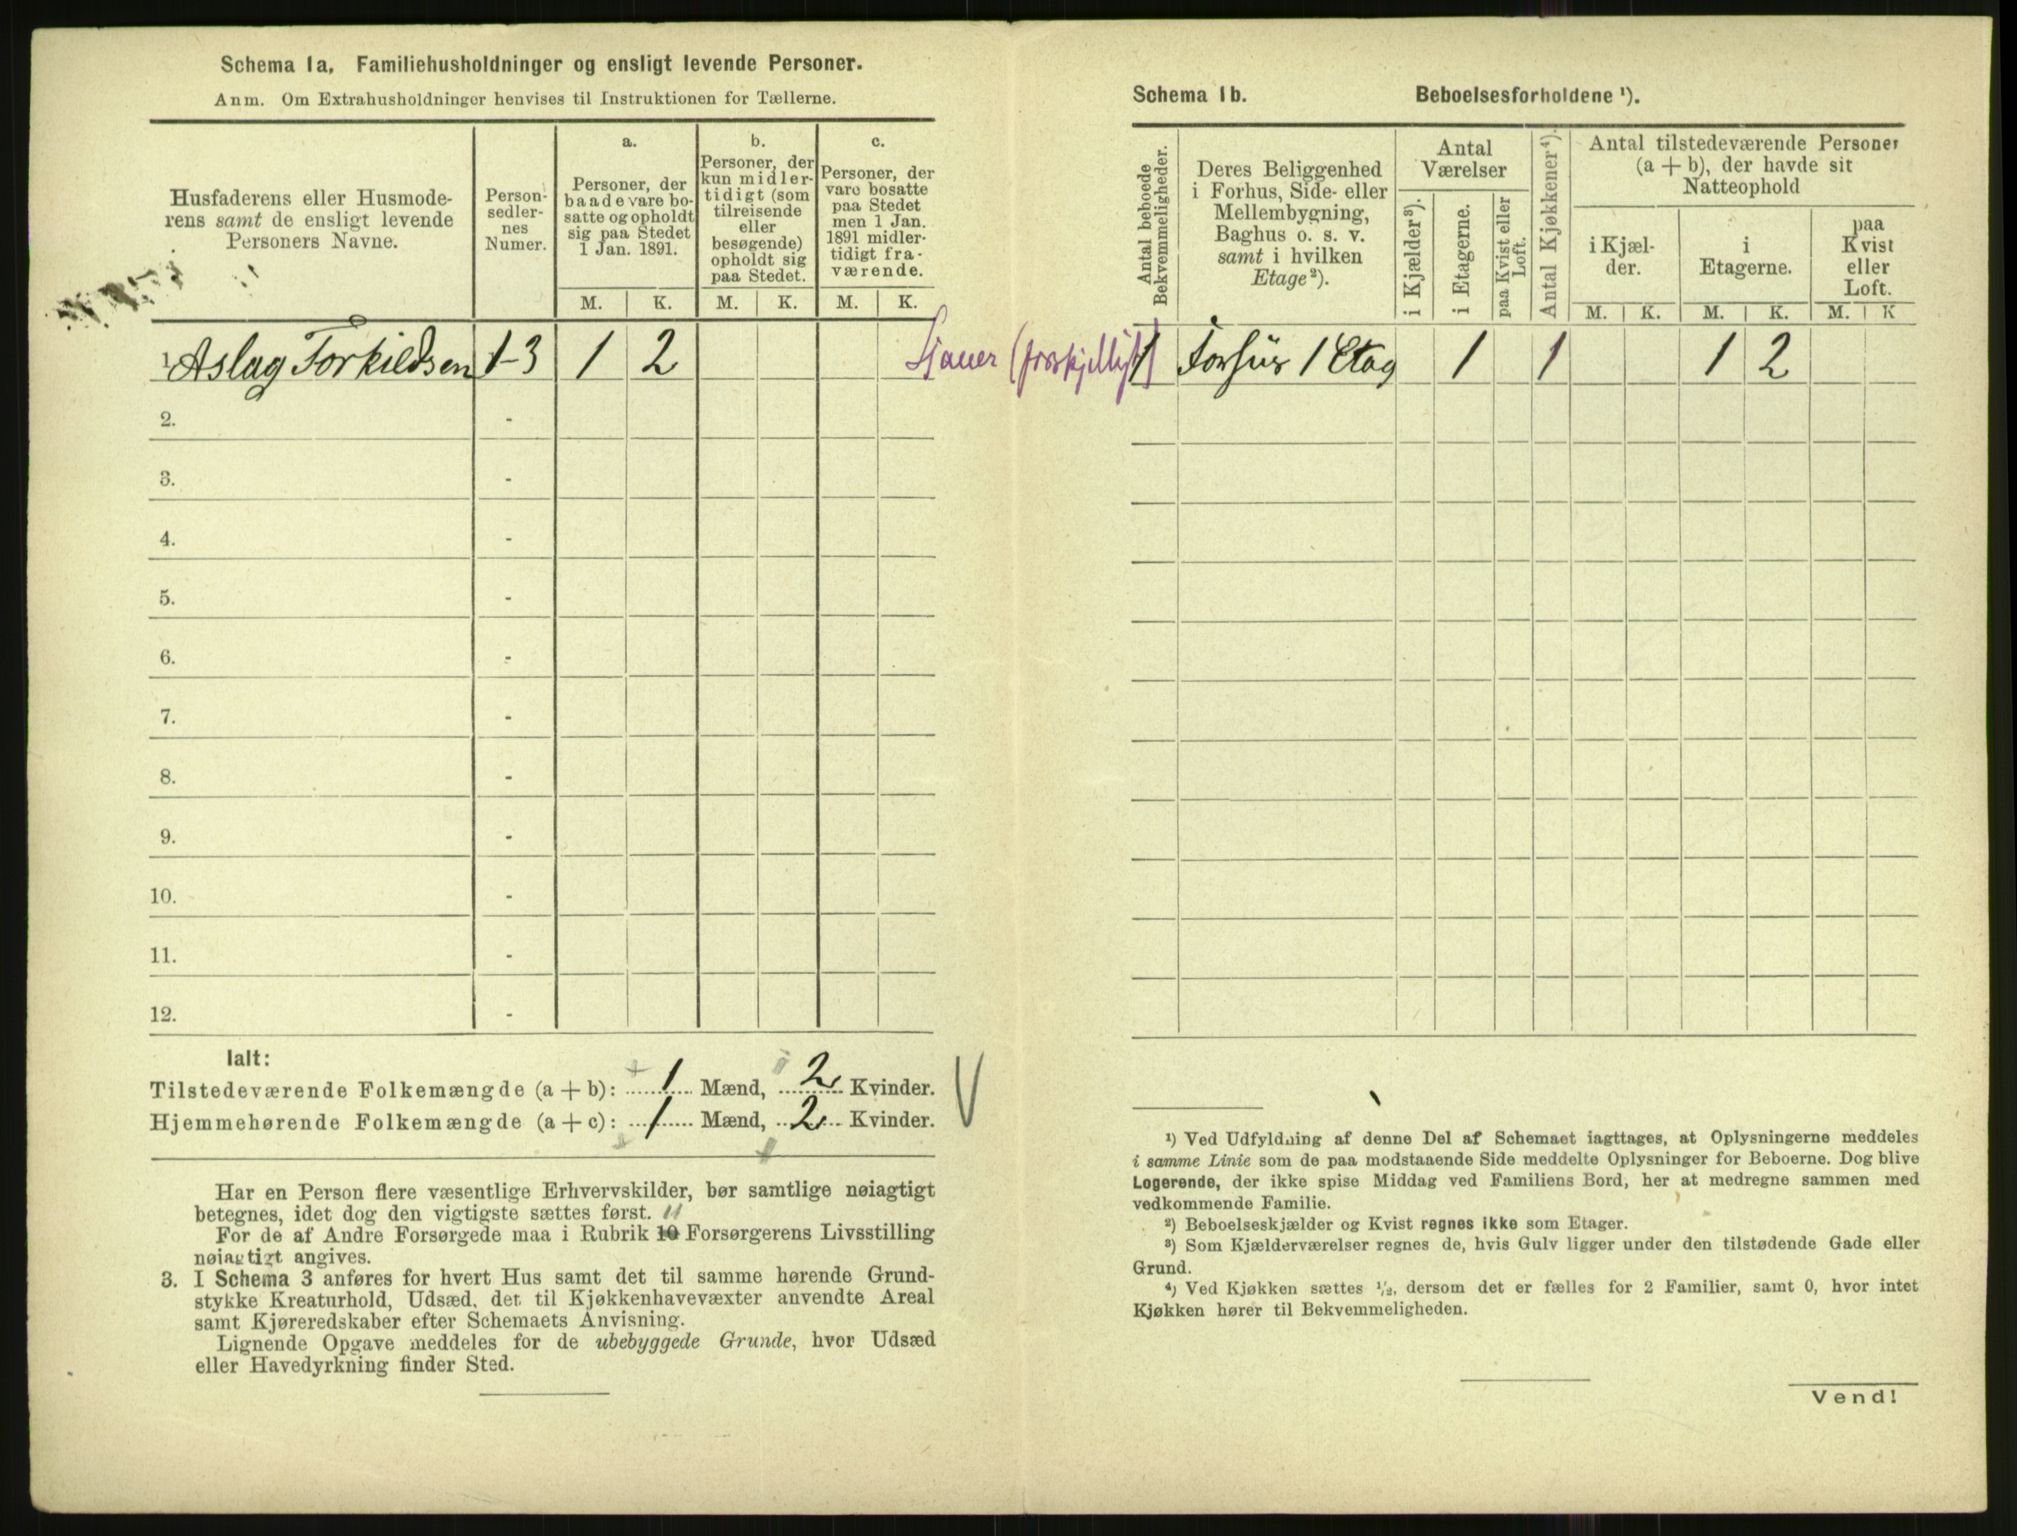 Schema 1a. Familiehusholdninger og ensligt levende Personer.
Anm. Om Extrahusholdninger henvises til Instruktionen for Tællerne.
Husfaderens eller Husmode-
rens samt de ensligt levende
Personers Navne.
Person-
sedler-
nes
Numer.
a.
Personer, der
baade vare bo-
satte og opholdt
sig paa Stedet
1 Jan. 1891.
M. K.
b.
Personer, der
kun midler-
tidigt (som
tilreisende
eller
besøgende)
opholdt sig
paa Stedet.
M. K.
c.
Personer, der
vare bosatte
paa Stedet
men 1 Jan.
1891 midler-
tidigt fra-
værende.
M. K.
1. Aslag Torkildsen 1-3 1 2
2. -
3. -
4. -
5. -
6. -
7. -
8. -
9. -
10. -
11. -
12. -
Ialt:
Tilstedeværende Folkemængde (a + b): 1 Mænd, 2 Kvinder.
Hjemmehørende Folkemængde (a + c): 1 Mænd, 2 Kvinder.
Har en Person flere væsentlige Erhvervskilder, bør samtlige nøiagtigt
betegnes, idet dog den vigtigste sættes først. 11
For de af Andre Forsørgede maa i Rubrik 10 Forsørgerens Livsstilling
nøiagtigt angives.
3. I Schema 3 anføres for hvert Hus samt det til samme hørende Grund-
stykke Kreaturhold, Udsæd, det til Kjøkkenhavevæxter anvendte Areal
samt Kjøreredskaber efter Schemaets Anvisning.
Lignende Opgave meddeles for de ubebyggede Grunde, hvor Udsæd
eller Havedyrkning finder Sted.
Schema 1b. Beboelsesforholdene ¹).
Antal beboede
Bekvemmeligheder.
Deres Beliggenhed
i Forhus, Side- eller
Mellembygning,
Baghus o. s. v.
samt i hvilken
Etage²).
Antal
Værelser
i Kjælder³).
i Etagerne.
paa Kvist eller
Loft.
Antal Kjøkkener⁴).
Antal tilstedeværende Personer
(a + b), der havde sit
Natteophold
i Kjæl-
der.
i
Etagerne.
paa
Kvist
eller
Loft.
M. K. M. K. M. K
Sjauer (forskjelligt)
1 Forhus 1 Etag 1 1 1 2
¹) Ved Udfyldning af denne Del af Schemaet iagttages, at Oplysningerne meddeles
i samme Linie som de paa modstaaende Side meddelte Oplysninger for Beboerne. Dog blive
Logerende, der ikke spise Middag ved Familiens Bord, her at medregne sammen med
vedkommende Familie.
²) Beboelseskjælder og Kvist regnes ikke som Etager.
³) Som Kjælderværelser regnes de, hvis Gulv ligger under den tilstødende Gade eller
Grund.
⁴) Ved Kjøkken sættes ¹/₂, dersom det er fælles for 2 Familier, samt 0, hvor intet
Kjøkken hører til Bekvemmeligheden.
Vend!